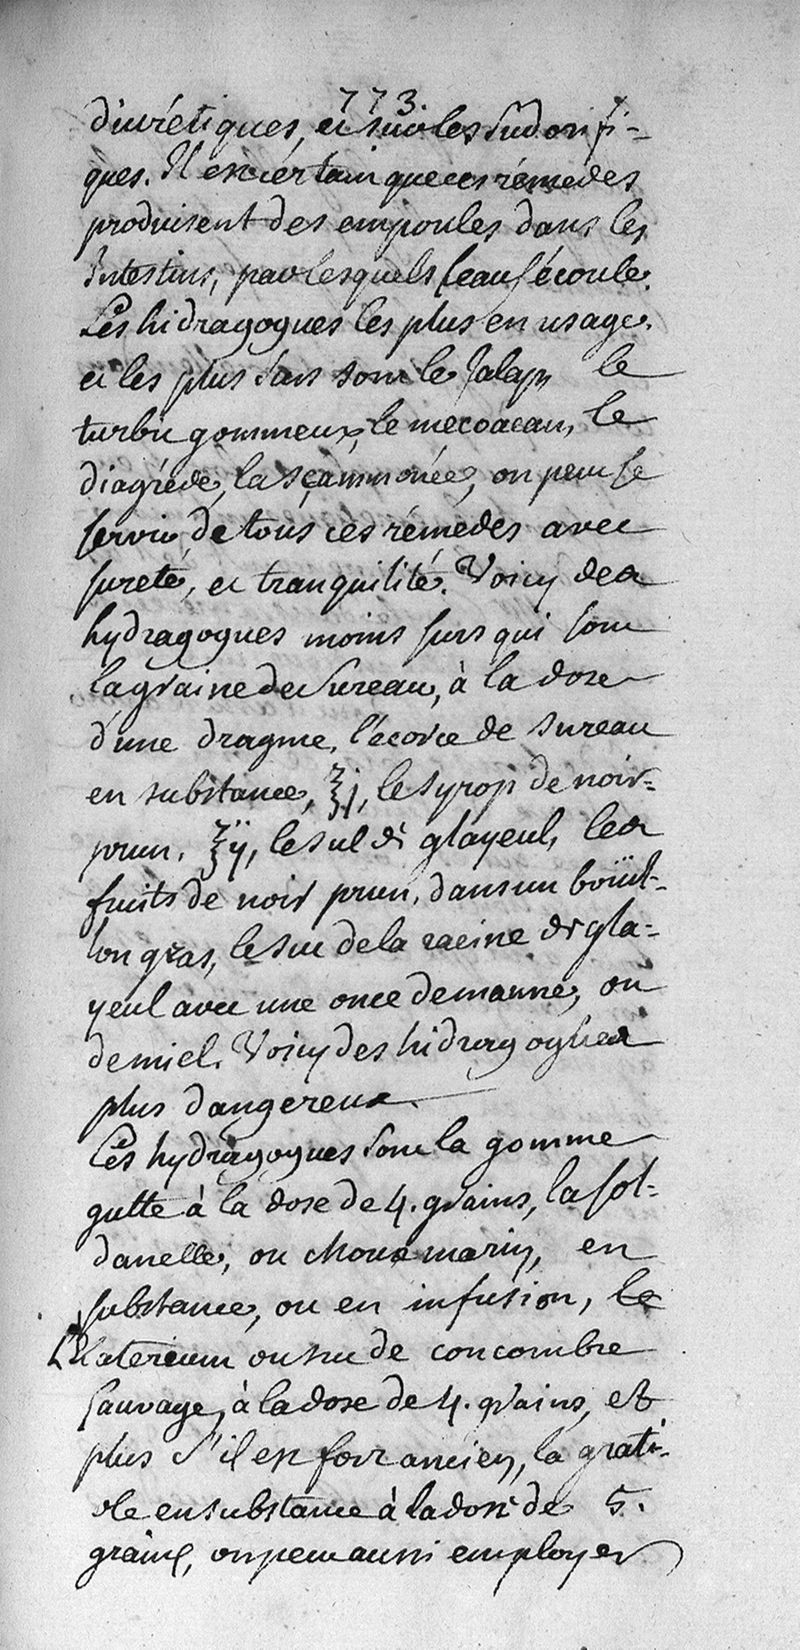 773.
diurétiques, et sur les sudorifi-
ques. Il est certain que ces rémédes
produisent des empoules dans les
Intestins, par lesquels l'eau s'écoule.
Les hidragogues les plus en usage
et les plus surs sont le Jalap, le
turbit gommeux, le mecoacam, le
diagréde, la scammonée, on peut se
servir de tous ces rémédes avec
sureté, et tranquilité. Voicy des
hydragogues moins surs qui sont
la graine de Sureau, à la dose
d'une dragme, l'écorce de sureau
en substance, ʒj, le syrop de noir=
prun, ℥ij, le sul de glayeul, les
fruits de noir prun, dans un boüil-
lon gras, le suc de la racine de gla=
yeul avec une once de manne, ou
de miel. Voicy des hidragogues
plus dangereux.
Ces hydragogues sont la gomme
gutte à la dose de 4. grains, la sol-
danelle, ou choux marin, en
substance, ou en infusion, le
L'Elaterium ou suc de concombre
sauvage, à la dose de 4. grains, et
plus s'il est fort ancien, la grati-
ole en substance à la dose de 5.
grains, on peut aussi employer